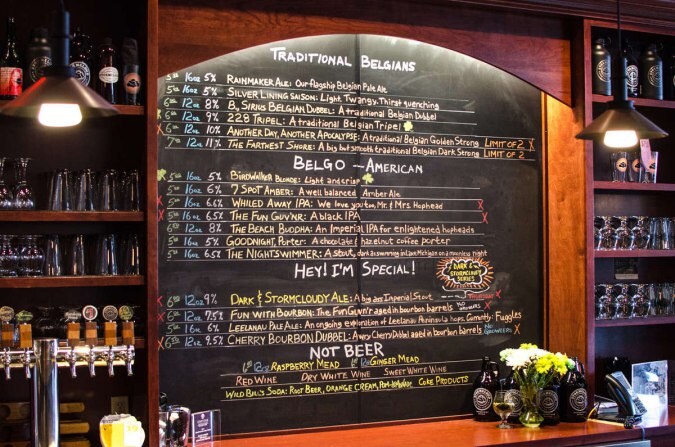 TRADITIONAL BELGIANS
5.00 16oz 5% RAINMAKER ALE: Our flagship Belgian Pale Ale
5.00 16oz 5% SILVER LINING SAISON: Light, Twangy, Thirst quenching
6.00 12oz 8% B. SIRIUS BELGIAN DUBBEL: A traditional Belgian Dubbel
6.00 12oz 9% 228 TRIPEL: A traditional Belgian Tripel
6.00 12oz 10% ANOTHER DAY, ANOTHER APOCALYPSE: A traditional Belgian Golden Strong LIMIT OF 2
7.00 12oz 11% THE FARTHEST SHORE: A big but smooth traditional Belgian Dark Strong LIMIT OF 2
BELGO-AMERICAN
16oz 5% BIRDWALKER BLONDE: Light and crisp
16oz 6% 7 SPOT AMBER: A well balanced Amber Ale
16oz 6.5% WHILED AWAY IPA: We love you too, Mr. & Mrs. Hophead
16oz 6.5% THE FUN GUV'NR: A black IPA
12oz 8% THE BEACH BUDDHA: An Imperial IPA for enlightened hopheads
16oz 5% GOODNIGHT, PORTER: A chocolate hazelnut coffee porter
16oz 6.5% THE NIGHTSWIMMER: A stout, dark as swimming in Lake Michigan on a moonless night
HEY! I'M SPECIAL!
DARK & STORMCLOUDY SERIES
12oz 9% DARK & STORMCLOUDY ALE: A big ass Imperial Stout
12oz 7.5% FUN WITH BOURBON: The Fun Guv'r aged in bourbon barrels NO GROWLERS
16oz 6% LEELANAU PALE ALE: An ongoing exploration of Leelanau Peninsula hops. Currently: Fuggles
12oz 9.5% CHERRY BOURBON DUBBEL: A very Cherry Dubbel aged in bourbon barrels NO GROWLERS
NOT BEER
12oz RASPBERRY MEAD 12oz GINGER MEAD
RED WINE DRY WHITE WINE SWEET WHITE WINE
WILD BILL'S SODA: ROOT BEER, ORANGE CREAM, COKE PRODUCTS